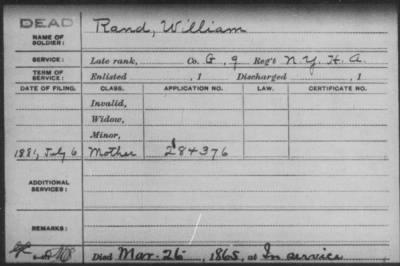 DEAD
NAME OF SOLDIER: Rand, William
SERVICE: Late rank, Co. G, 9 Reg't N.Y.H.A.
TERM OF SERVICE: Enlisted , 1 Discharged , 1
DATE OF FILING. CLASS. APPLICATION NO. LAW. CERTIFICATE NO.
Invalid,
Widow,
Minor,
1881, July 6 Mother 284376
ADDITIONAL SERVICES:
REMARKS:
Died Mar. 26, 1865, at In service